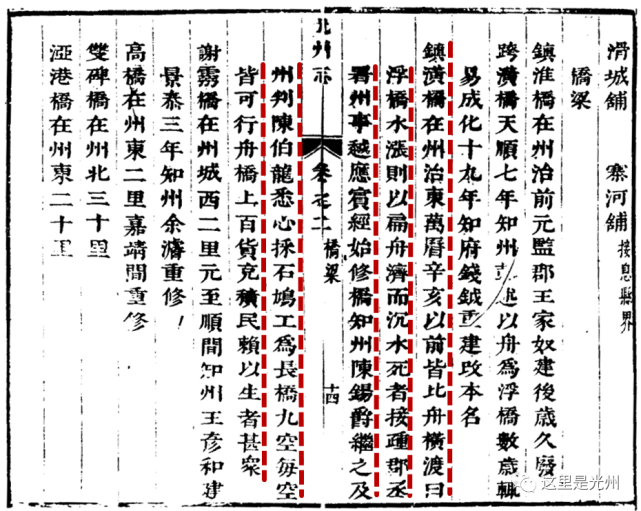 滑城舖 寨河舖接息縣界
橋梁
鎮淮橋在州治前元監郡王家奴建後歲久廢
跨潢橋天順七年知州 以舟為浮橋數歲輒
易成化十九年知府錢鉞重建改本名
鎮潢橋在州治東萬曆辛亥以前皆比舟橫渡曰
浮橋水漲則以扁舟濟而沉水死者接踵郡丞
署州事越應賓經始修橋知州陳錫爵繼之及
光州志 卷之二 橋梁 十四
州判陳伯龍悉心採石鳩工為長橋九空每空
皆可行舟橋上百貨充積民賴以生者甚衆
謝霧橋在州城西二里元至順間知州王彥和建
景泰三年知州余濬重修
高橋在州東二里嘉靖間重修
雙碑橋在州北三十里
涇港橋在州東二十里
这里是光州